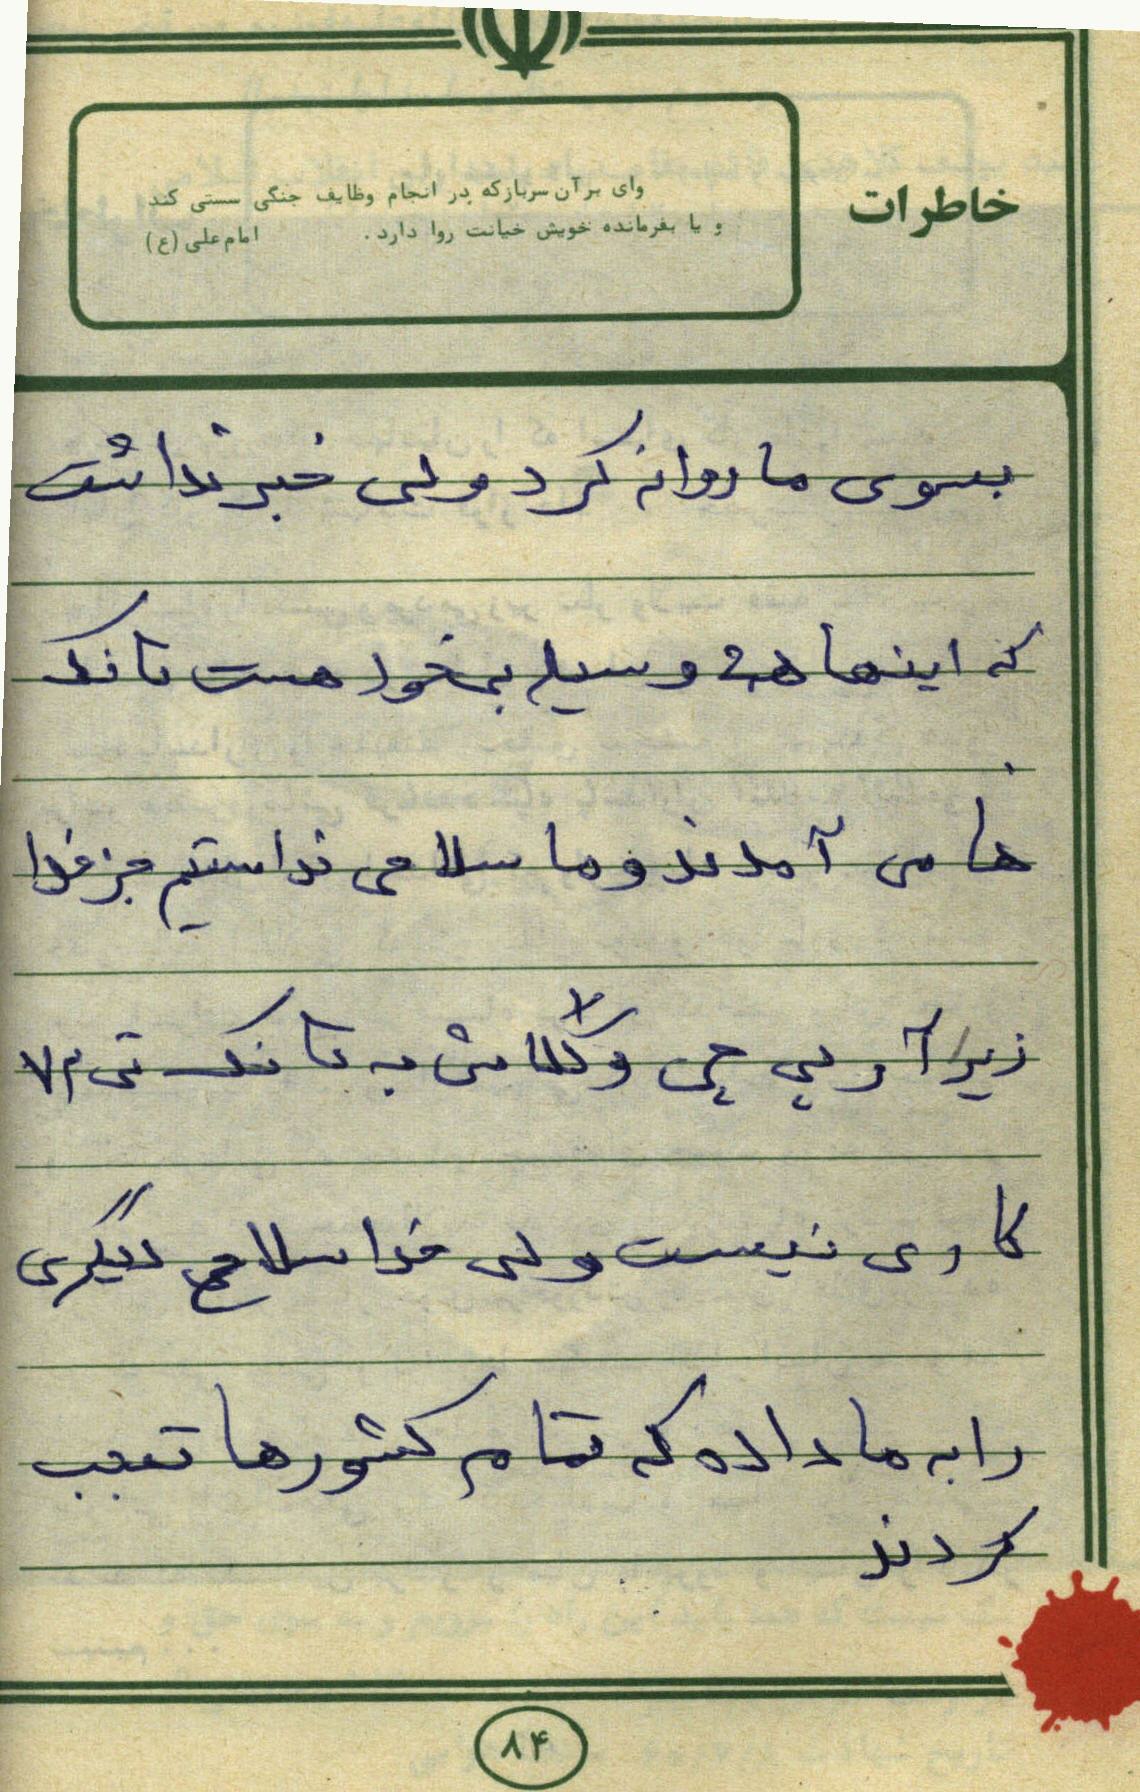 خاطرات
وای بر آن سرباز که در انجام وظایف جنگی سستی کند
و یا بفرمانده خویش خیانت روا دارد. امام علی (ع)
بسوی ما روانه کرد ولی خبر نداشت
که اینها همه وسیله بخواهست تانک
ها می آمدند و ما سلاحی نداستیم جز خدا
زیرا آر پی جی ۷ و کلاش به تانک تی ۷۲
کاری نیست ولی خدا سلاح دیگری
را به ما داده که تمام کشورها تعجب
کردند
۸۴